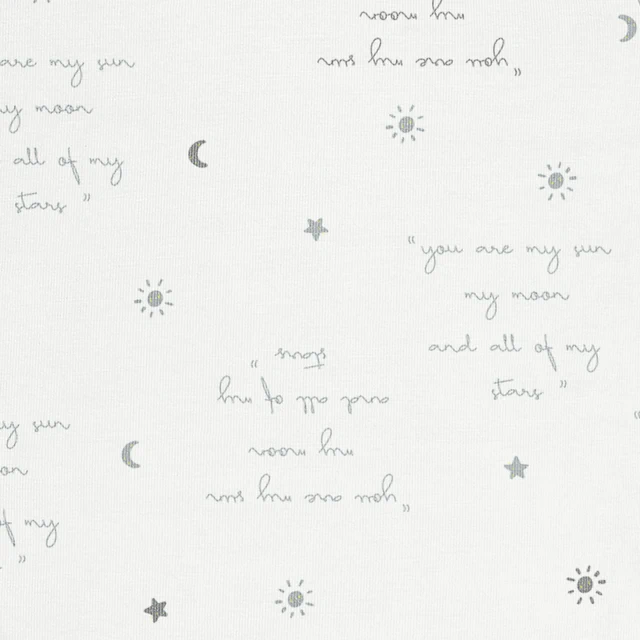 my moon
you are my sun„
are my sun
my moon
all of my
stars ”
“ you are my sun
my moon
and all of my
stars ”
stars ”
and all of my
my moon
“ you are my sun
my sun
of my
”